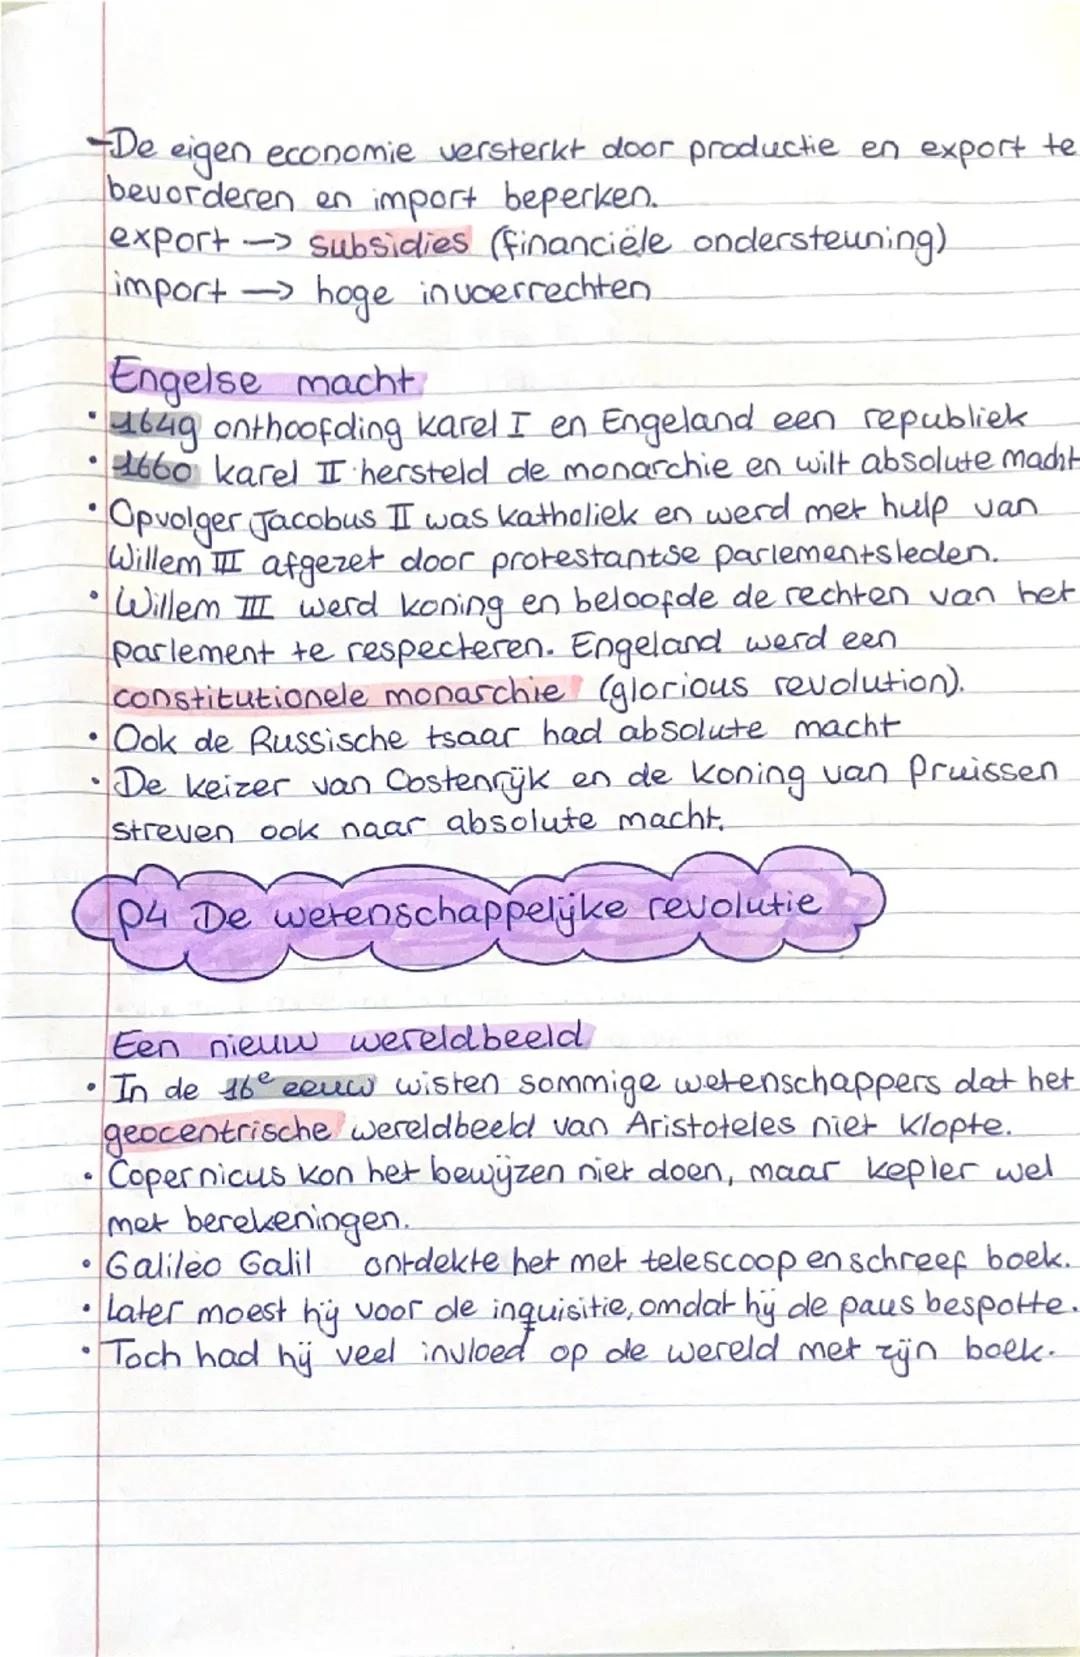 -De eigen economie versterkt door productie en export te
bevorderen en import beperken.
export → subsidies (financiële ondersteuning)
import → hoge invoerrechten
Engelse macht
• 1649 onthoofding Karel I en Engeland een republiek
• 1660 karel II hersteld de monarchie en wilt absolute macht
• Opvolger Jacobus II was katholiek en werd met hulp van
Willem III afgezet door protestantse parlementsleden.
• Willem III werd koning en beloofde de rechten van het
parlement te respecteren. Engeland werd een
constitutionele monarchie (glorious revolution).
• Ook de Russische tsaar had absolute macht
• De keizer van Oostenrijk en de koning van Pruissen
streven ook naar absolute macht.
P4 De wetenschappelijke revolutie
Een nieuw wereldbeeld
• In de 16e eeuw wisten sommige wetenschappers dat het
geocentrische wereldbeeld van Aristoteles niet klopte.
• Copernicus kon het bewijzen niet doen, maar kepler wel
met berekeningen.
• Galileo Galil ontdekte het met telescoop en schreef boek.
• Later moest hij voor de inquisitie, omdat hij de paus bespotte.
• Toch had hij veel invloed op de wereld met zijn boek.